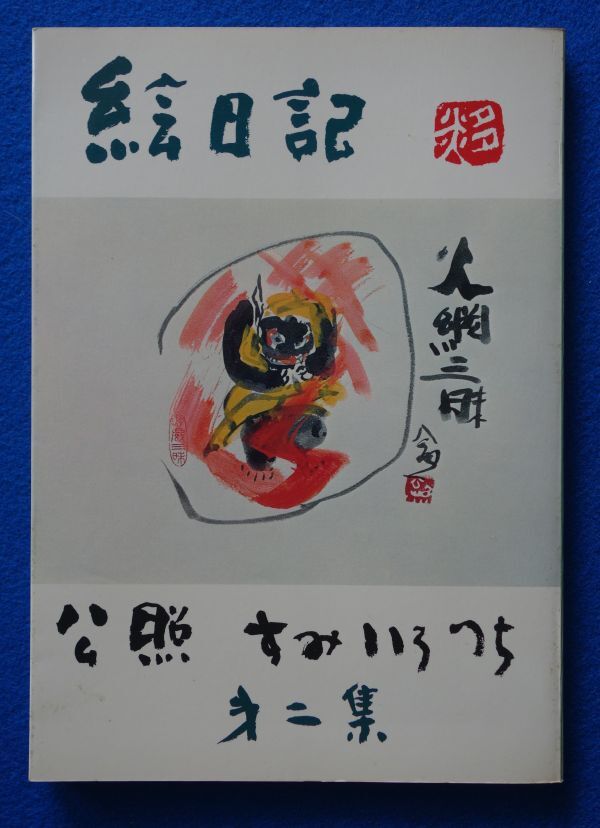 絵日記
火網三昧
公照 すみいろつち
第二集